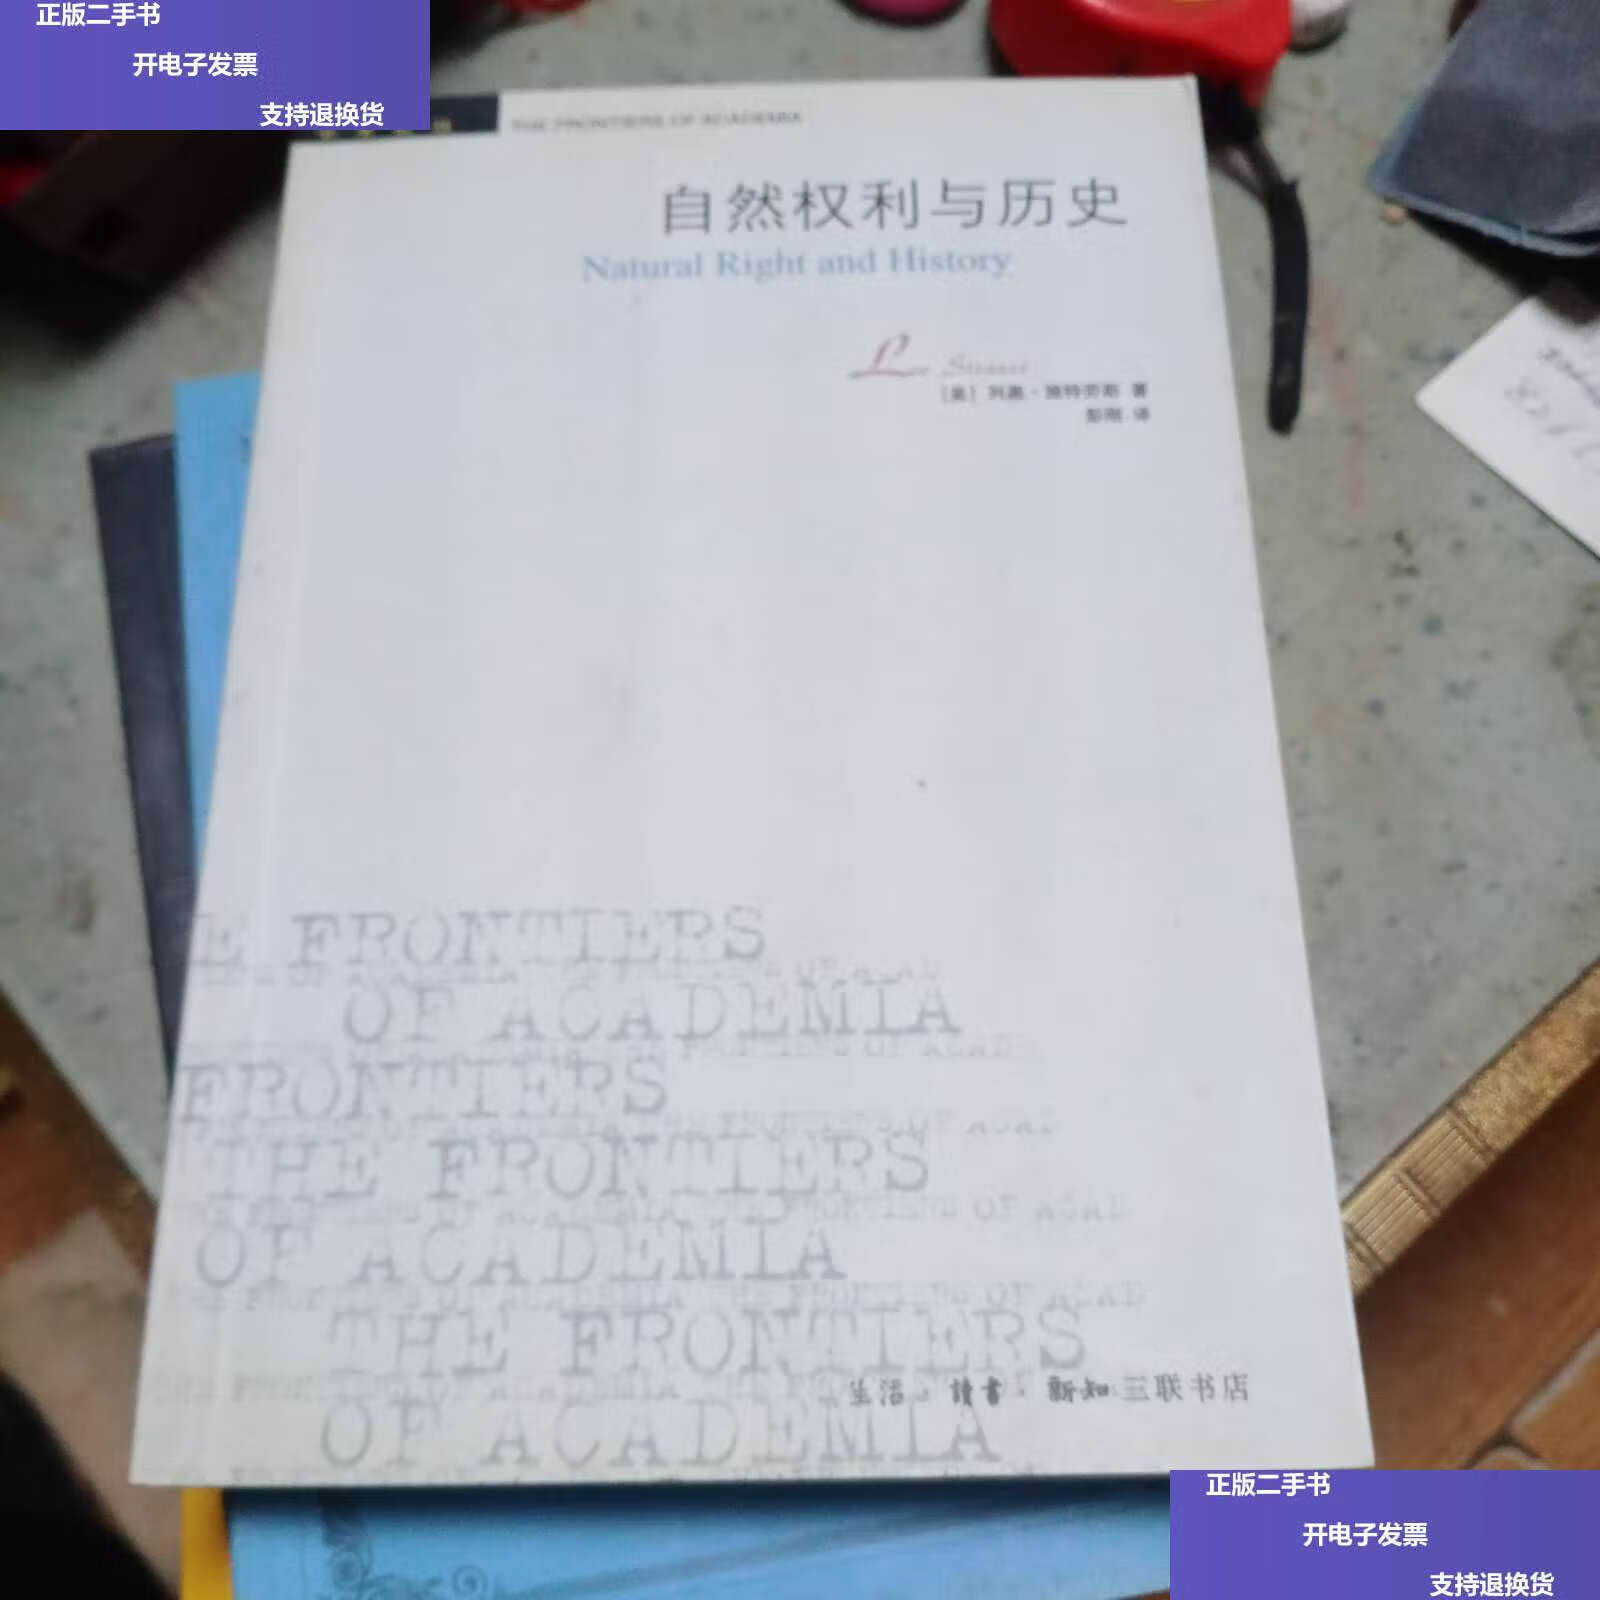 正版二手书
开电子发票
支持退换货
THE FRONTIERS OF ACADEMIA
自然权利与历史
Natural Right and History
Leo Strauss
[美] 列奥·施特劳斯 著
彭刚 译
E FRONTIERS
OF ACADEMIA
FRONTIERS
THE FRONTIERS
OF ACADEMIA
THE FRONTIERS
生活·讀書·新知三联书店
OF ACADEMIA
正版二手书
开电子发票
支持退换货